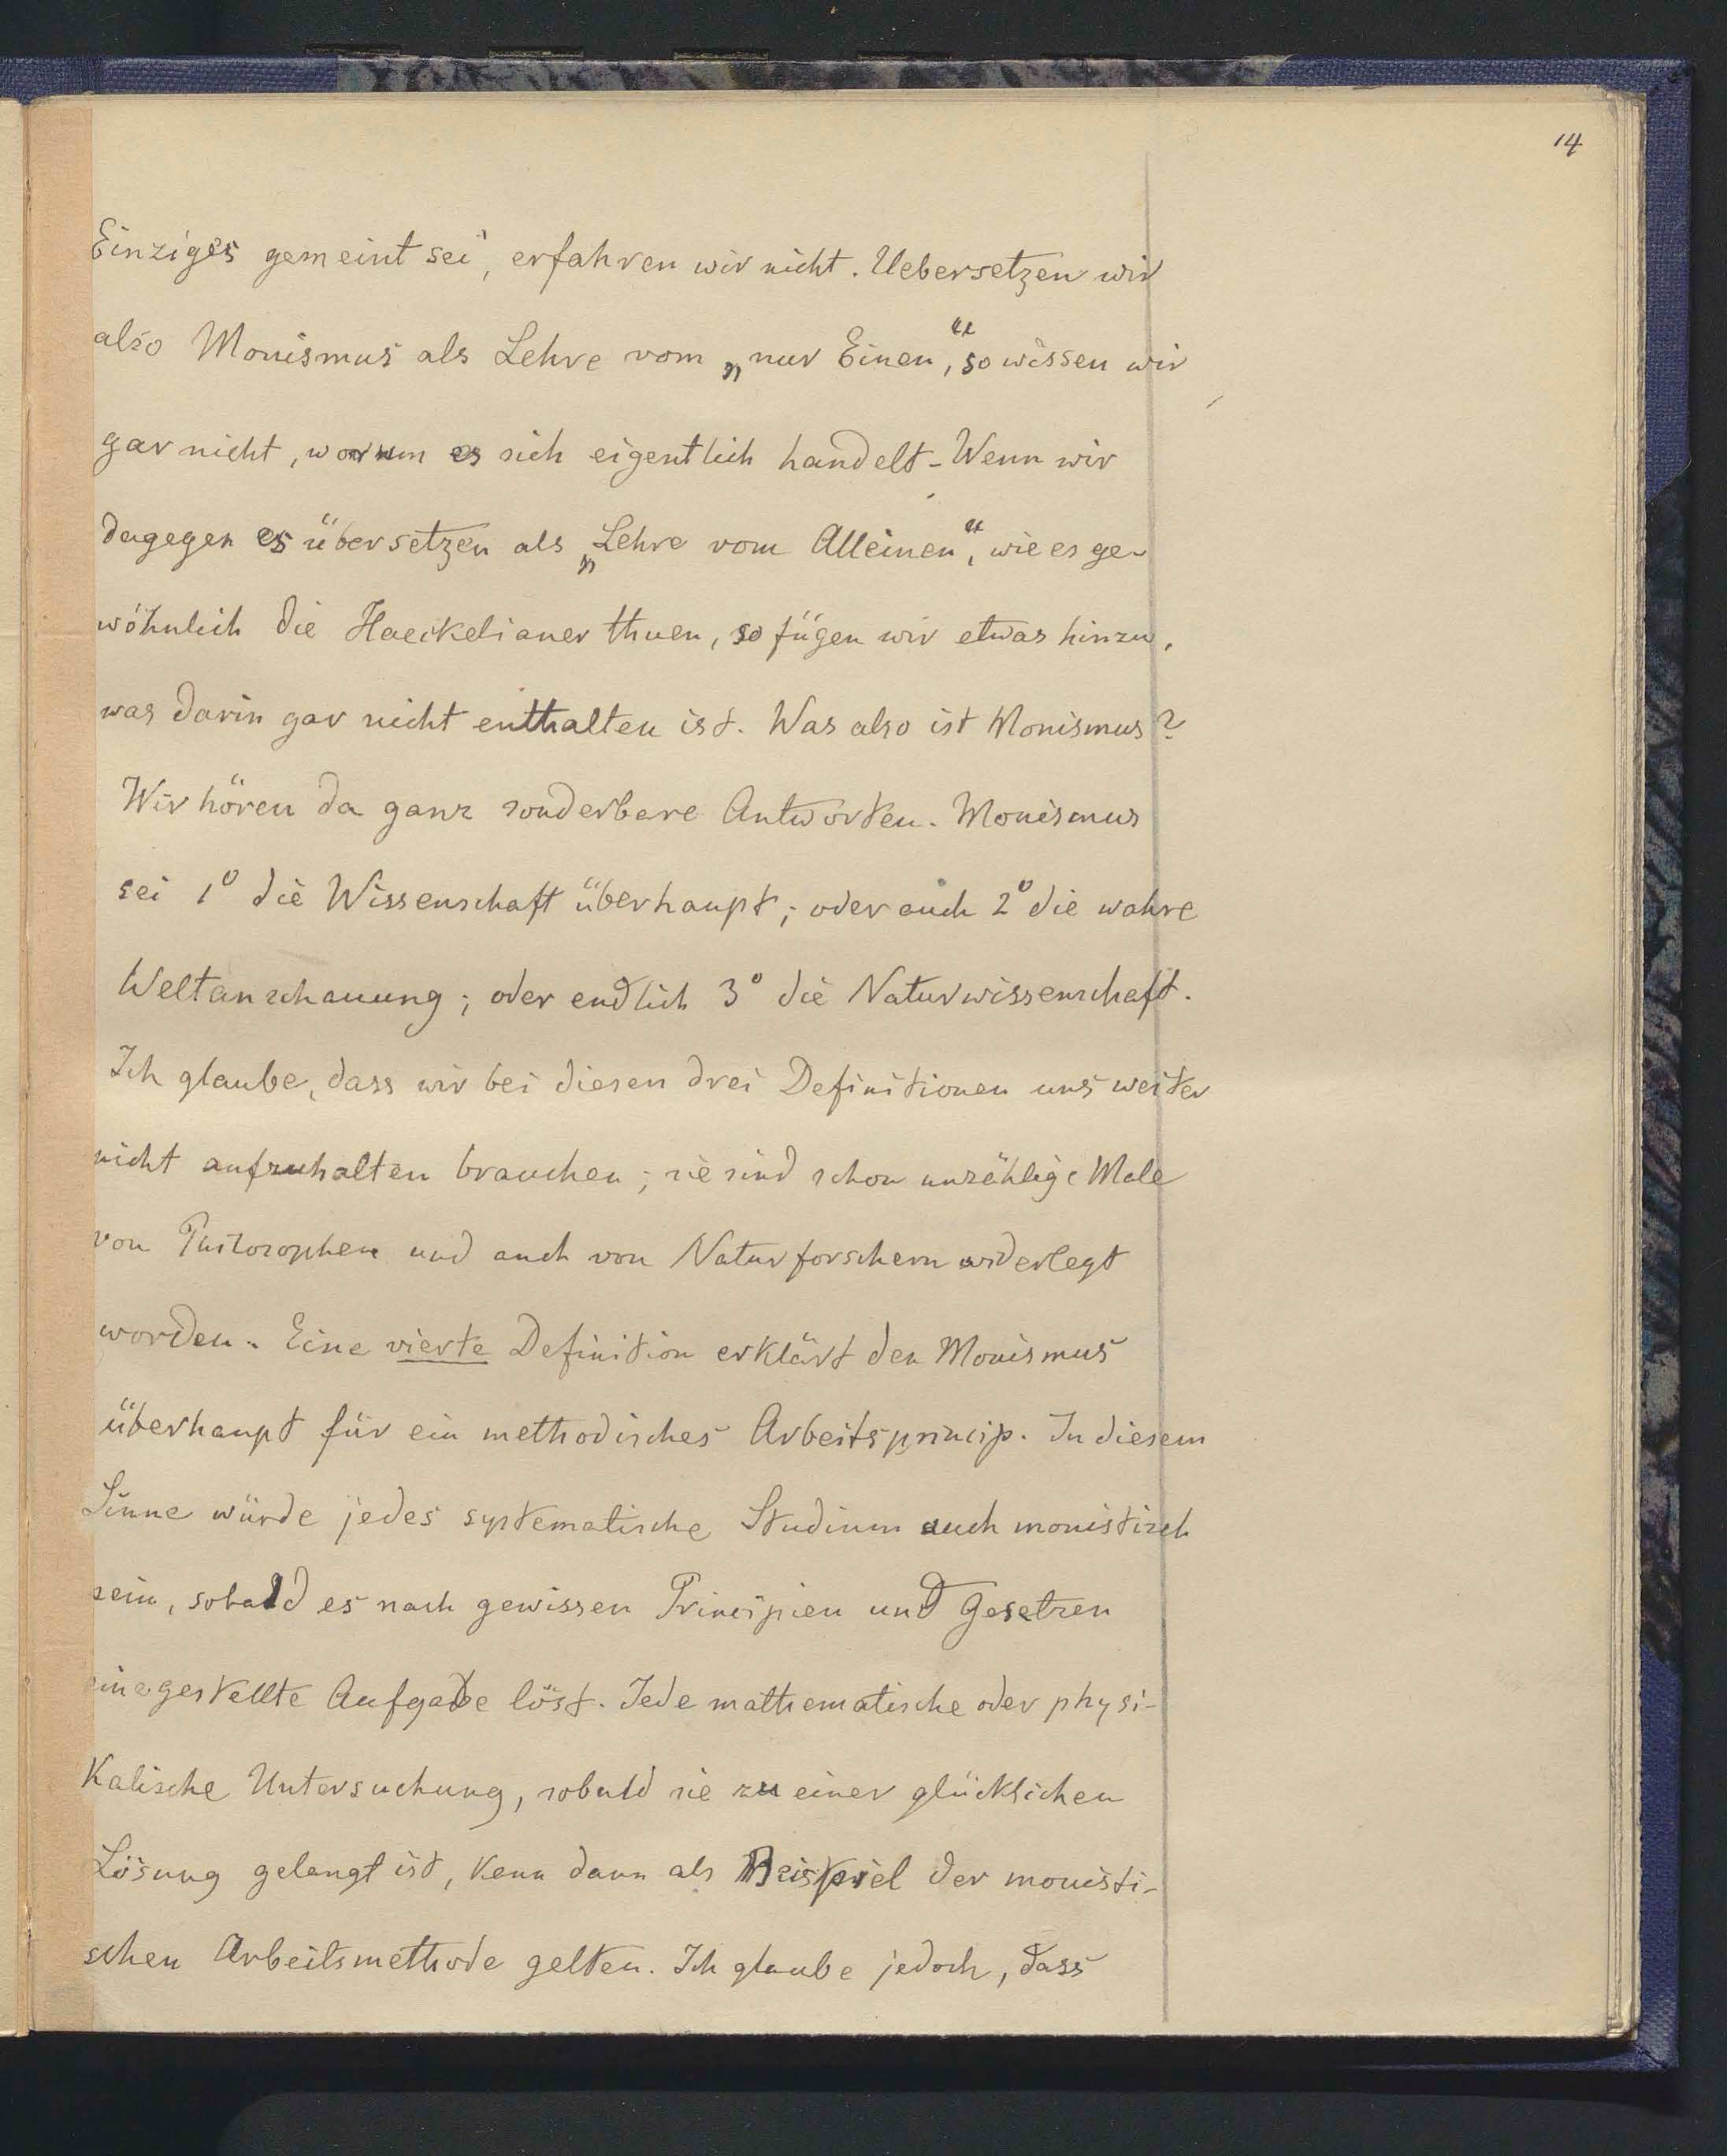 14
Einziges gemeint sei, erfahren wir nicht. Uebersetzen wir
also Monismus als Lehre vom „nur Einen“, so wissen wir
gar nicht, worum es sich eigentlich handelt. Wenn wir
dagegen es übersetzen als „Lehre vom Alleinen“, wie es ge-
wöhnlich die Haeckelianer thuen, so fügen wir etwas hinzu,
was darin gar nicht enthalten ist. Was also ist Monismus?
Wir hören da ganz sonderbare Antworten. Monismus
sei 1⁰ die Wissenschaft überhaupt; oder auch 2⁰ die wahre
Weltanschauung; oder endlich 3⁰ die Naturwissenschaft.
Ich glaube, dass wir bei diesen drei Definitionen uns weiter
nicht aufzuhalten brauchen; sie sind schon unzählige Male
von Philosophen und auch von Naturforschern widerlegt
worden. Eine vierte Definition erklärt den Monismus
überhaupt für ein methodisches Arbeitsprincip. In diesem
Sinne würde jedes systematische Studium auch monistisch
sein, sobald es nach gewissen Principien und Gesetzen
eine gestellte Aufgabe löst. Jede mathematische oder physi-
kalische Untersuchung, sobald sie zu einer glücklichen
Lösung gelangt ist, kann dann als Beispiel der monisti-
schen Arbeitsmethode gelten. Ich glaube jedoch, dass